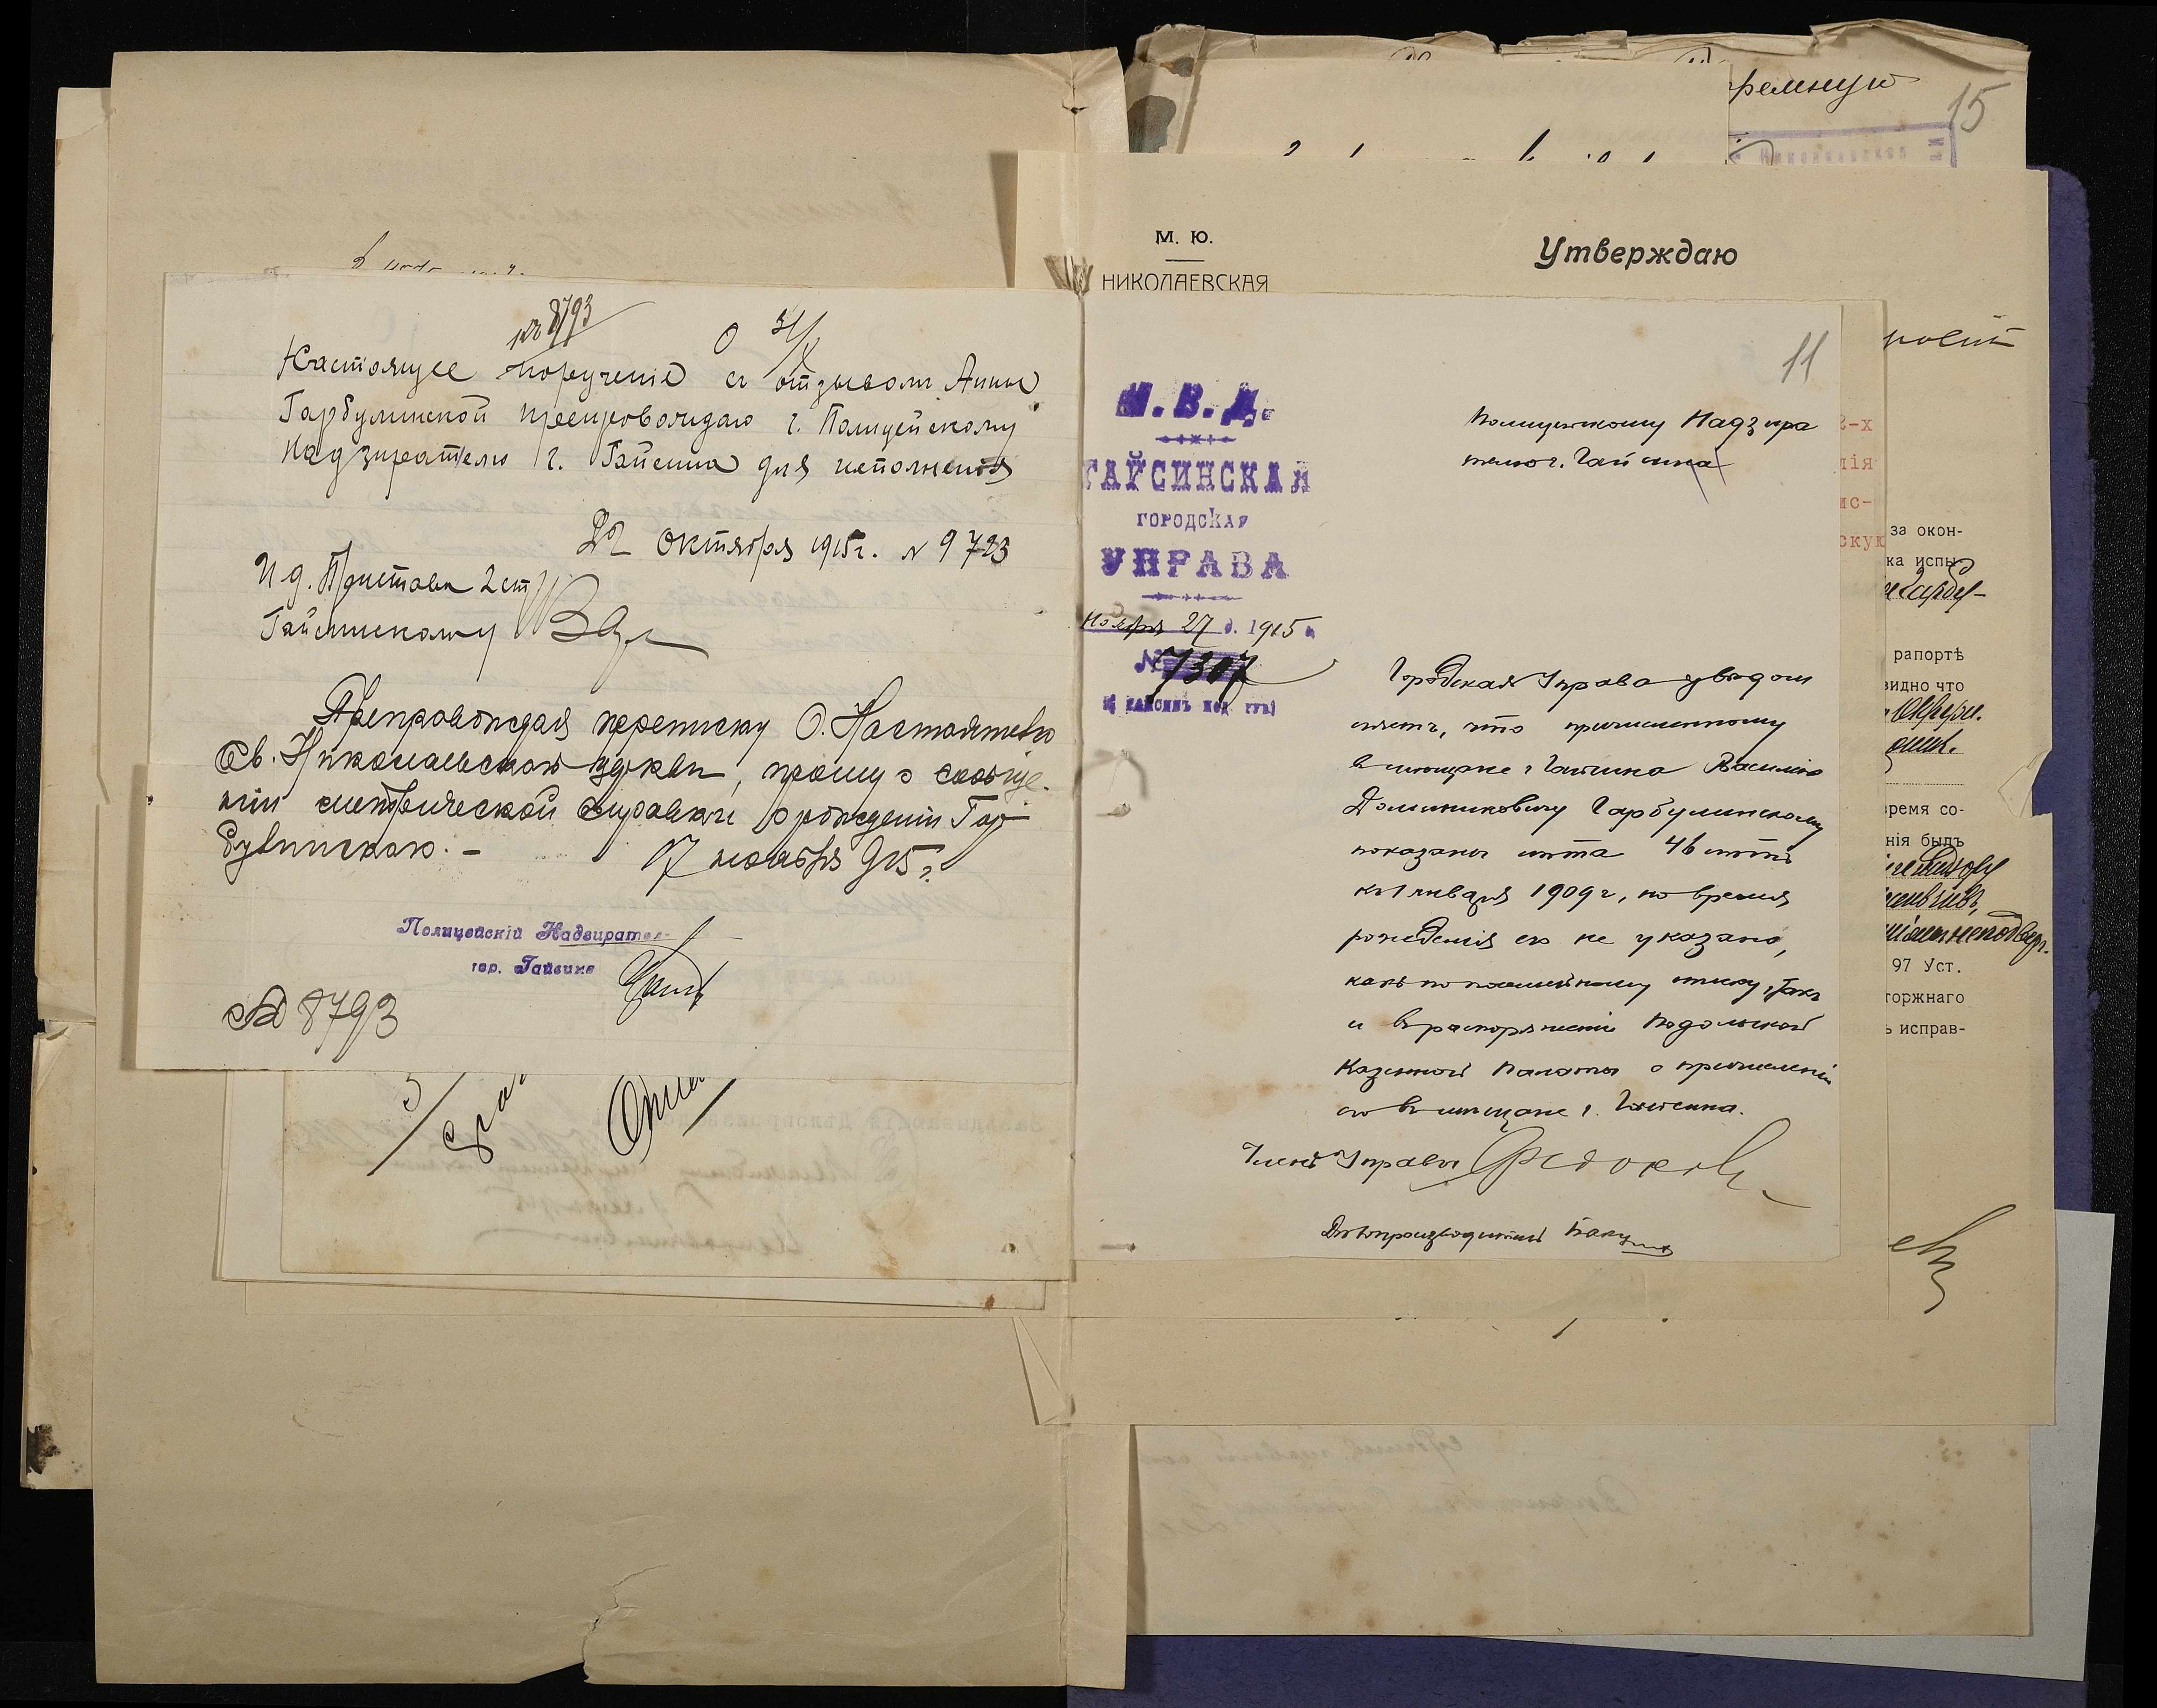 № 8793
О 31/X
Настоящее порученіе съ отзывомъ Анны
Гарбулинской препровождаю г. Полицейскому
Надзирателю г. Гайсина для исполненія
22 Октября 1915 г. № 9723
И. д. Пристава 2 ст.
Гайсинскому
Препровождая переписку О. Настоятелю
Св. Николаевской церкви, прошу о сообще-
ніи метрической справки о рожденіи Гар-
булинскаго. —
17 ноября 915 г.
Полицейскій Надзирател
гор. Гайсина
№ 8793
ремную
15
М. Ю.
НИКОЛАЕВСКАЯ
Утверждаю
11
М. В. Д.
ГАЙСИНСКАЯ
ГОРОДСКАЯ
УПРАВА
Ноября 27 д. 1915 г.
№ 7307
Полицейскому Надзира
телю г. Гайсина
Городская Управа уведом
ляетъ, что причисленному
в мещане г. Гайсина Василію
Доминиковичу Гарбулинскому
показаны лета 46 летъ
къ 1 января 1909 г., но время
рожденія его не указано,
какъ по посемейному списку, такъ
и въ распоряженіи Подольской
Казенной Палаты о причисленіи
его въ мещане г. Гайсина.
Членъ Управы
Делопроизводитель
2-х
лія
ис-
скую
за окон-
ка испы
Гарбу-
рапортѣ
видно что
время со-
нія былъ
97 Уст.
торжнаго
ь исправ-